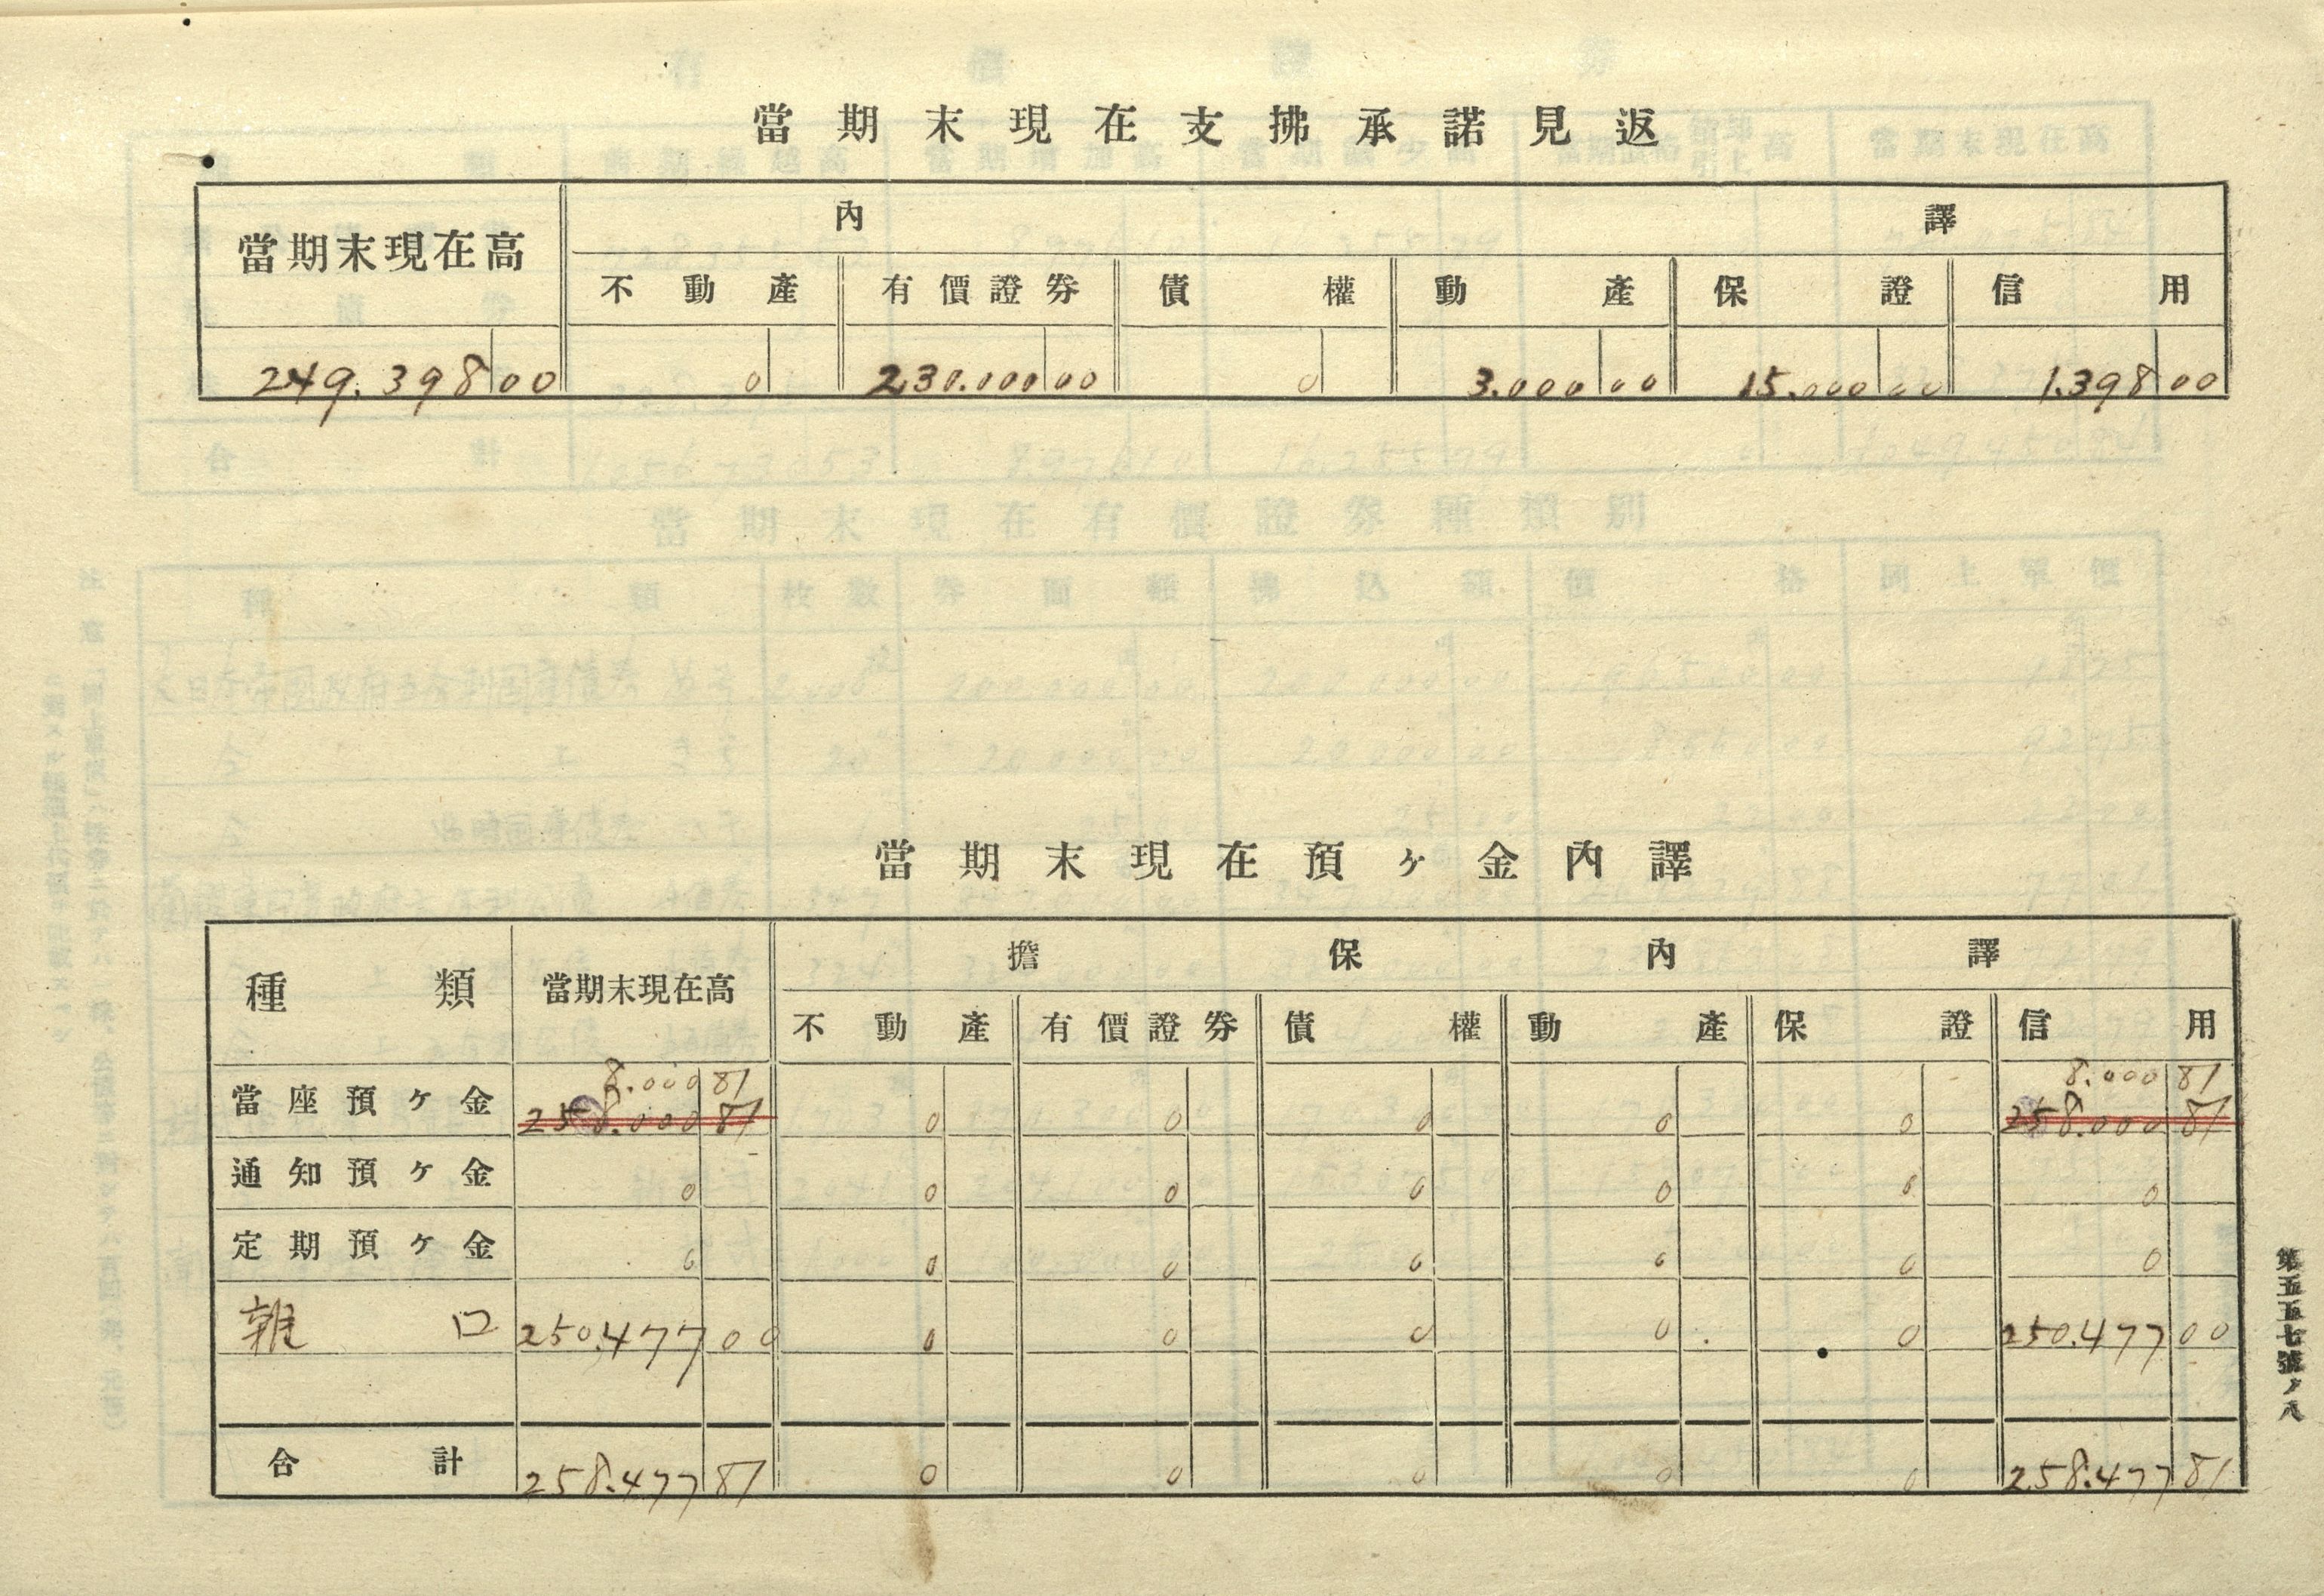 當期末現在支拂承諾見返
當期末現在高 內譯
不動產 有價證券 債權 動產 保證 信用
249.398 00 0 230.000 00 0 3.000 00 15.000 00 1.398 00
當期末現在預ヶ金內譯
種類 當期末現在高 擔保內譯
不動產 有價證券 債權 動產 保證 信用
8.000 81 8.000 81
當座預ヶ金 258.000 81 0 0 0 0 0 258.000 81
通知預ヶ金 0 0 0 0 0 0 0
定期預ヶ金 0 0 0 0 0 0 0
雜口 250.477 00 0 0 0 0 0 250.477 00
合計 258.477 81 0 0 0 0 0 258.477 81
第五五七號ノ八